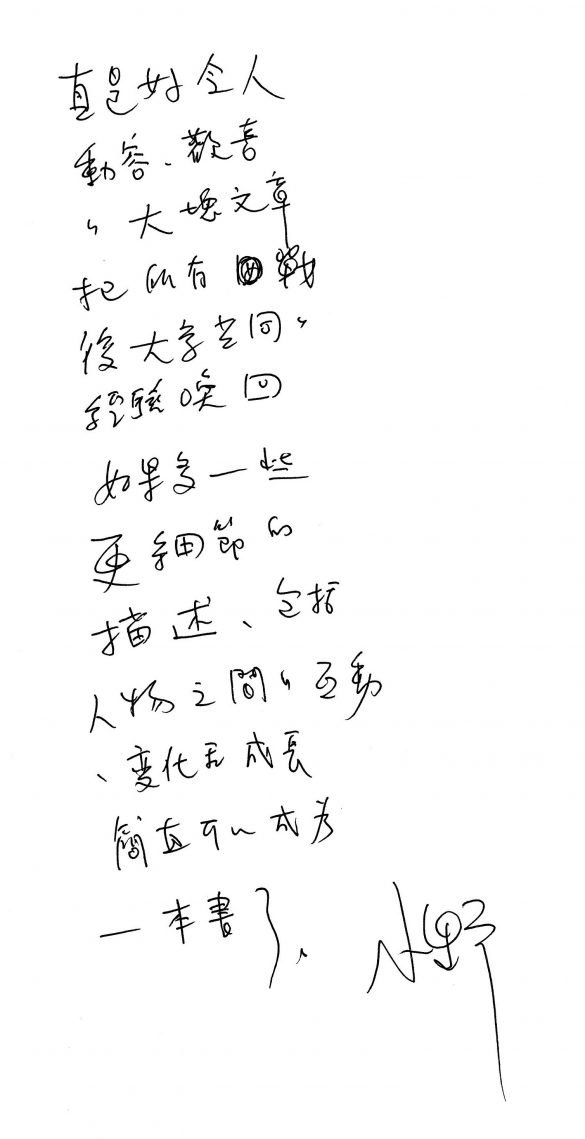 真是好令人
動容、歡喜
的大塊文章
把所有戰
後大学空間的
經驗喚回
如果多一些
更細節的
描述、包括
人物之間的互動
、变化和成長
簡直可以成為
一本書了、
小野